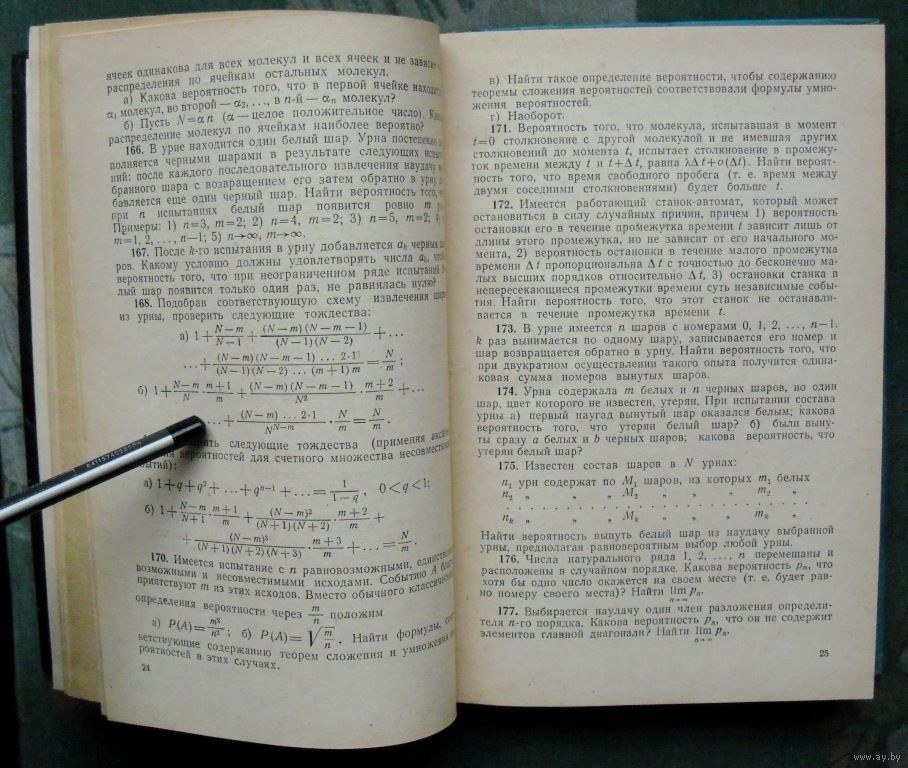 ячеек одинакова для всех молекул и всех ячеек и не зависит
распределения по ячейкам остальных молекул.
а) Какова вероятность того, что в первой ячейке находится
α₁ молекул, во второй — α₂, ..., в n-й — αₙ молекул?
б) Пусть N=αn (α — целое положительное число).
распределение молекул по ячейкам наиболее вероятно?
166. В урне находится один белый шар. Урна постепенно
полняется черными шарами в результате следующих
ний: после каждого последовательного извлечения наудачу
бранного шара с возвращением его затем обратно в урну
бавляется еще один черный шар. Найти вероятность того,
при n испытаниях белый шар появится ровно m
Примеры: 1) n=3, m=2; 2) n=4, m=2; 3) n=5, m=2; 4)
m=1, 2, ..., n—1; 5) n→∞, m→∞.
167. После k-го испытания в урну добавляется aₖ черных
ров. Какому условию должны удовлетворять числа aₖ,
вероятность того, что при неограниченном ряде испытаний
лый шар появится только один раз, не равнялась нулю?
168. Подобрав соответствующую схему извлечения
из урны, проверить следующие тождества:
а) 1+(N—m)/(N—1)+((N—m)(N—m—1))/((N—1)(N—2))+...
...+((N—m)(N—m—1) ... 2·1)/((N—1)(N—2) ... (m+1)m)=N/m;
б) 1+(N—m)/N·(m+1)/m+((N—m)(N—m—1))/N²·(m+2)/m+...
...+((N—m) ... 2·1)/N^(N—m)·N/m=N/m.
следующие тождества (применяя
вероятностей для счетного множества
а) 1+q+q²+...+qⁿ⁻¹+...=1/(1—q), 0<q<1;
б) 1+(N—m)/(N+1)·(m+1)/m+(N—m)²/((N+1)(N+2))·(m+2)/m+
+(N—m)³/((N+1)(N+2)(N+3))·(m+3)/m+...=N/m.
170. Имеется испытание с n равновозможными,
возможными и несовместимыми исходами. Событию A
приятствуют m из этих исходов. Вместо обычного
определения вероятности через m/n положим
а) P(A)=m²/n²; б) P(A)=√(m/n). Найти формулы,
ветствующие содержанию теорем сложения и умножения
роятностей в этих случаях.
24
в) Найти такое определение вероятности, чтобы содержанию
теоремы сложения вероятностей соответствовали формулы умно-
жения вероятностей.
г) Наоборот.
171. Вероятность того, что молекула, испытавшая в момент
t=0 столкновение с другой молекулой и не имевшая других
столкновений до момента t, испытает столкновение в промежу-
ток времени между t и t+Δt, равна λΔt+o(Δt). Найти вероят-
ность того, что время свободного пробега (т. е. время между
двумя соседними столкновениями) будет больше t.
172. Имеется работающий станок-автомат, который может
остановиться в силу случайных причин, причем 1) вероятность
остановки его в течение промежутка времени t зависит лишь от
длины этого промежутка, но не зависит от его начального мо-
мента, 2) вероятность остановки в течение малого промежутка
времени Δt пропорциональна Δt с точностью до бесконечно ма-
лых высших порядков относительно Δt, 3) остановки станка в
непересекающиеся промежутки времени суть независимые собы-
тия. Найти вероятность того, что этот станок не останавли-
вается в течение промежутка времени t.
173. В урне имеется n шаров с номерами 0, 1, 2, ..., n—1.
k раз вынимается по одному шару, записывается его номер и
шар возвращается обратно в урну. Найти вероятность того, что
при двукратном осуществлении такого опыта получится одина-
ковая сумма номеров вынутых шаров.
174. Урна содержала m белых и n черных шаров, но один
шар, цвет которого не известен, утерян. При испытании состава
урны а) первый наугад вынутый шар оказался белым; какова
вероятность того, что утерян белый шар? б) были выну-
ты сразу a белых и b черных шаров; какова вероятность, что
утерян белый шар?
175. Известен состав шаров в N урнах:
n₁ урн содержат по M₁ шаров, из которых m₁ белых
n₂ „ „ „ M₂ „ „ „ m₂ „
. . . . . . . . . . . . . . . . . . . .
nₖ „ „ „ Mₖ „ „ „ mₖ „
Найти вероятность вынуть белый шар из наудачу выбранной
урны, предполагая равновероятным выбор любой урны.
176. Числа натурального ряда 1, 2, ..., n перемешаны и
расположены в случайном порядке. Какова вероятность pₙ, что
хотя бы одно число окажется на своем месте (т. е. будет рав-
но номеру своего места)? Найти lim pₙ.
n→∞
177. Выбирается наудачу один член разложения определи-
теля n-го порядка. Какова вероятность pₙ, что он не содержит
элементов главной диагонали? Найти lim pₙ.
n→∞
25
www.ay.by